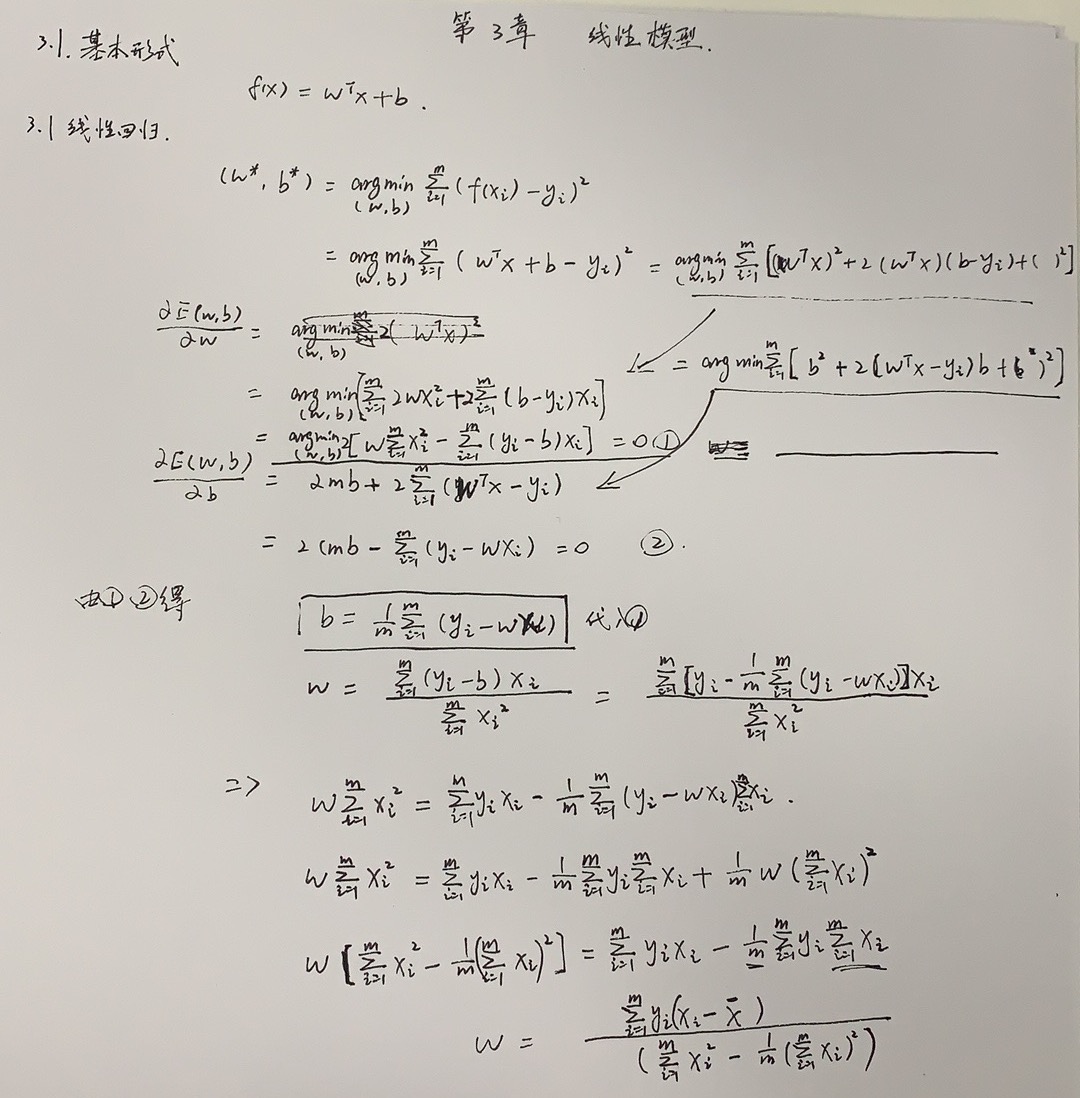 第3章 线性模型.
3.1. 基本形式
f(x) = wᵀx + b .
3.1 线性回归.
(w*, b*) = arg min_(w,b) Σ_{i=1}^m (f(xᵢ) - yᵢ)²
= arg min_(w,b) Σ_{i=1}^m (wᵀx + b - yᵢ)² = arg min_(w,b) Σ_{i=1}^m [(wᵀx)² + 2(wᵀx)(b-yᵢ) + ( )²]
∂E(w,b)/∂w = arg min_(w,b) 2( wᵀx)²
= arg min Σ_{i=1}^m [b² + 2(wᵀx - yᵢ)b + ( )²]
= arg min_(w,b) [Σ_{i=1}^m 2wxᵢ² + 2Σ_{i=1}^m (b-yᵢ)xᵢ]
= arg min_(w,b) 2[w Σ_{i=1}^m xᵢ² - Σ_{i=1}^m (yᵢ-b)xᵢ] = 0 ①
∂E(w,b)/∂b = 2mb + 2Σ_{i=1}^m (wᵀx - yᵢ)
= 2(mb - Σ_{i=1}^m (yᵢ - wxᵢ) = 0 ② .
由①②得
b = 1/m Σ_{i=1}^m (yᵢ - wxᵢ) 代入①
w = Σ_{i=1}^m (yᵢ-b)xᵢ / Σ_{i=1}^m xᵢ² = Σ_{i=1}^m [yᵢ - 1/m Σ_{i=1}^m (yᵢ - wxᵢ)]xᵢ / Σ_{i=1}^m xᵢ²
=> w Σ_{i=1}^m xᵢ² = Σ_{i=1}^m yᵢxᵢ - 1/m Σ_{i=1}^m (yᵢ - wxᵢ) Σ_{i=1}^m xᵢ .
w Σ_{i=1}^m xᵢ² = Σ_{i=1}^m yᵢxᵢ - 1/m Σ_{i=1}^m yᵢ Σ_{i=1}^m xᵢ + 1/m w (Σ_{i=1}^m xᵢ)²
w [Σ_{i=1}^m xᵢ² - 1/m (Σ_{i=1}^m xᵢ)²] = Σ_{i=1}^m yᵢxᵢ - 1/m Σ_{i=1}^m yᵢ Σ_{i=1}^m xᵢ
w = Σ_{i=1}^m yᵢ(xᵢ - x̄) / (Σ_{i=1}^m xᵢ² - 1/m (Σ_{i=1}^m xᵢ)²)